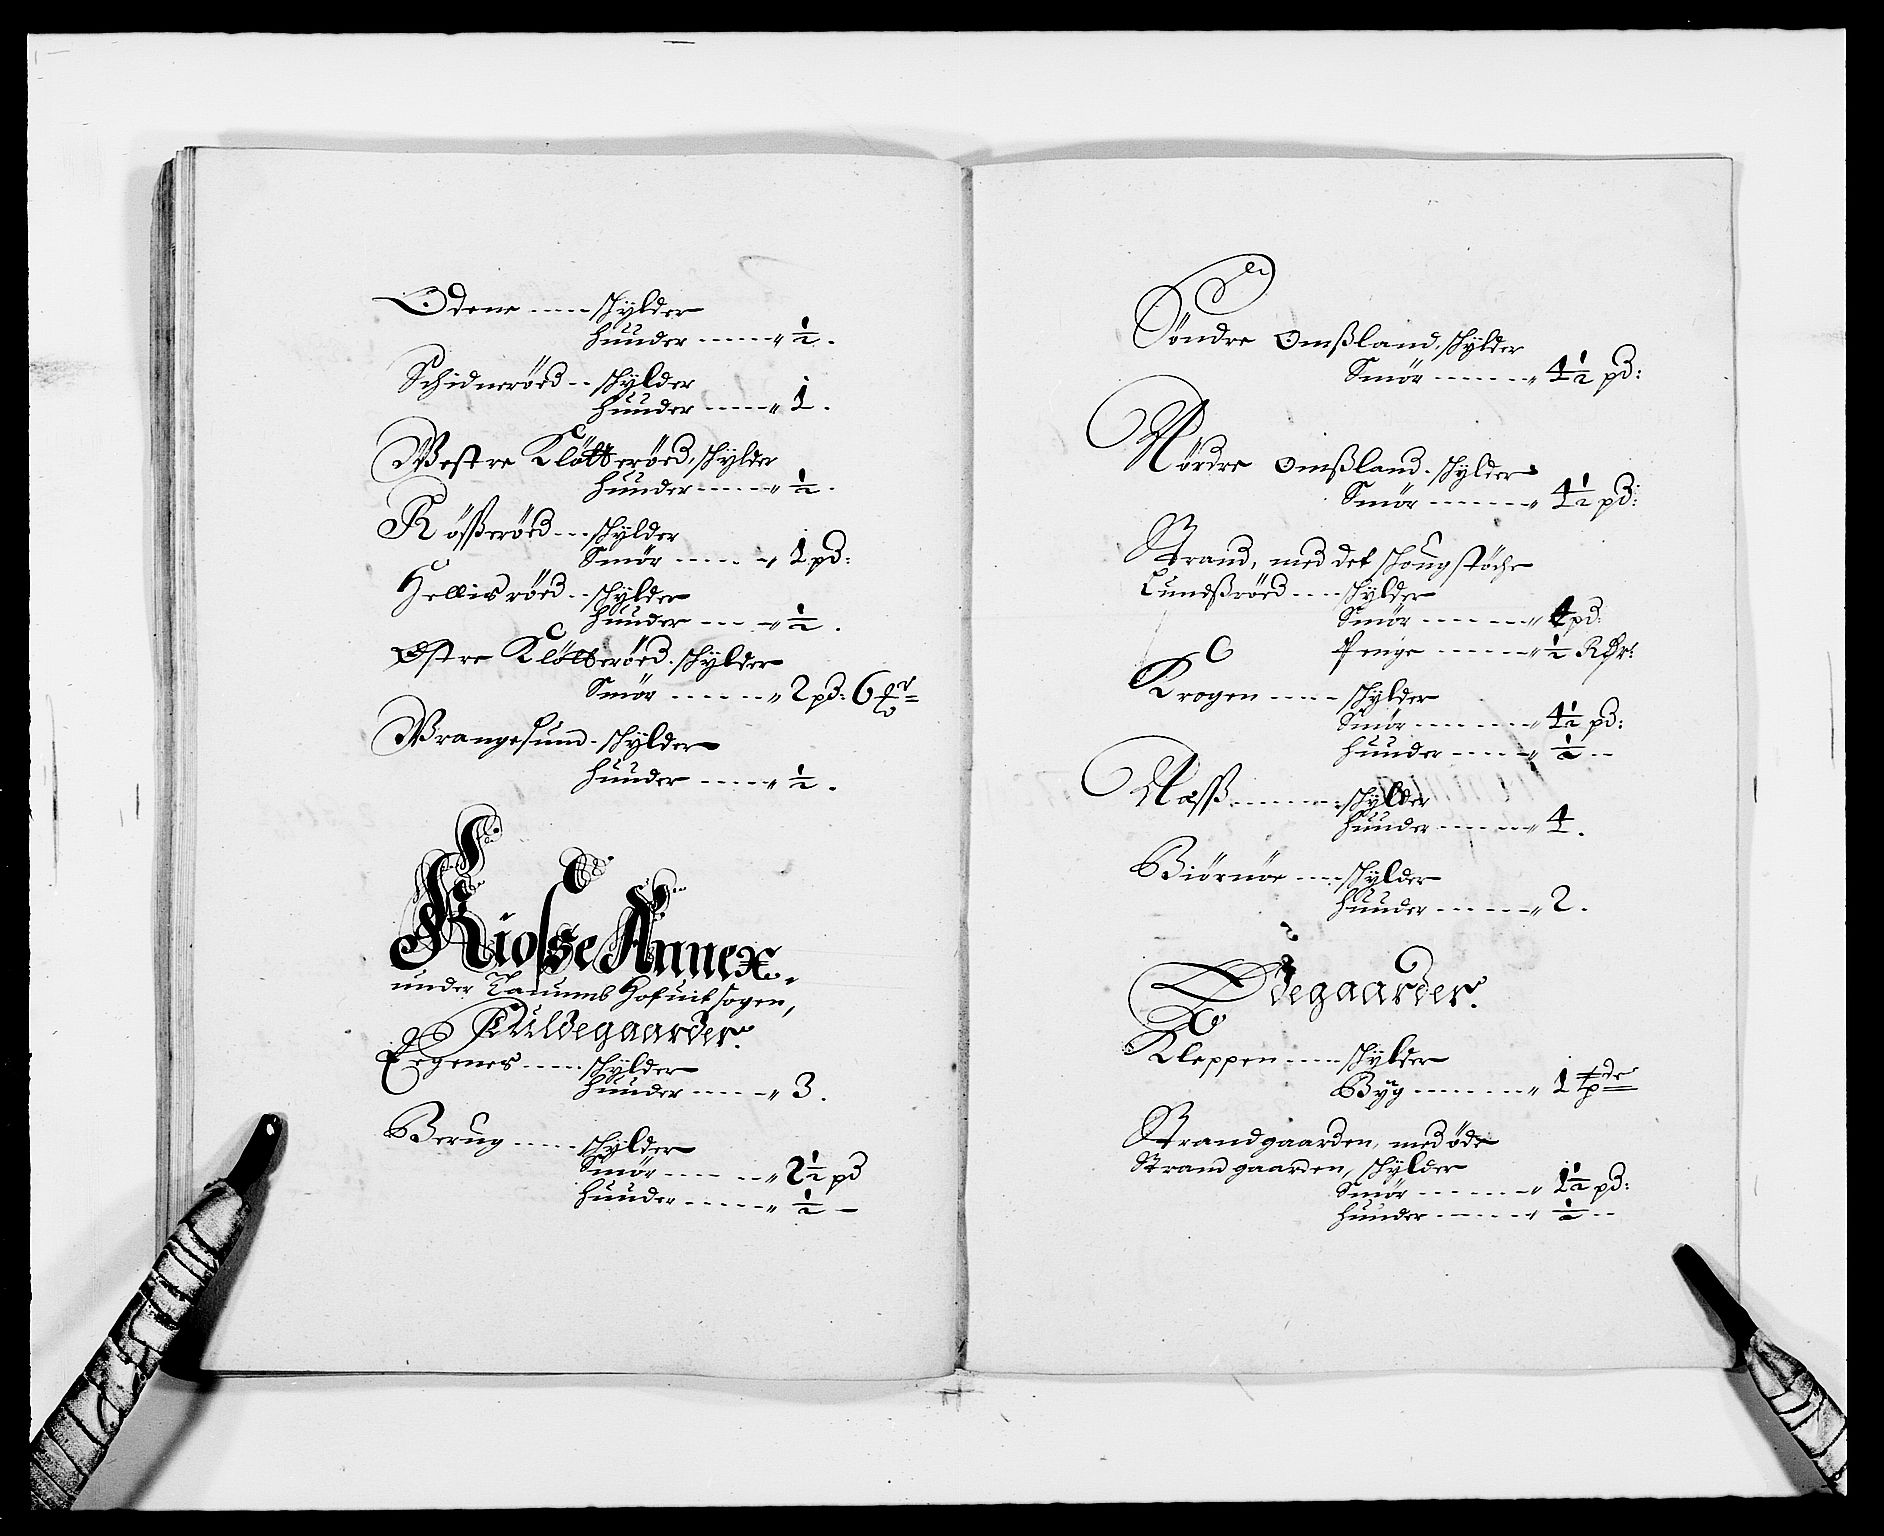 Odene ----- schylder
huuder ------ „ ½ .
Schidneröed -- schylder
huuder ----- „ 1 .
Westre Klötteröed, schylder
huuder ------ „ ½ .
Rösseröed --- schylder
Smör ------ „ 1 pd:
Hellisröed -- schylder
huuder ---- „ ½ .
Østre Klötteröed. schylder
Smör ------- „ 2 pd: 6
Wrangesund - schylder
huuder ------ „ ½ .
Kiosse Annex.
under Tanums Hofuit sogen,
Fuldegaarder.
Eegenes ----- schylder
huuder ------ „ 3 .
Berug ----- schylder
Smör ------ „ 2½ pd
huuder ------ „ ½ –
Söndre Omßland, schylder
Smör ------- „ 4½ pd:
Nördre Omßland. schylder
Smör ------- „ 4½ pd:
Strand, med det schougstöche
Lundßröed ---- schylder
Smör ------- „ 4 pd:
Penge ------ „ ½ Rdr:
Krogen ----- schylder
Smör ------- „ 4½ pd:
huuder ------ „ ½ --
Næss ------- schylder
huuder ------ „ 4 .
Biörnöe ---- schylder
huuder ------- „ 2 .
Ødegaarder.
Kleppen ----- schylder
Byg ------- „ 1 tpde
Strandgaarden, med öde
Strandgaarden, schylder
Smör ------- „ 1½ pd:
huuder ------- „ ½ --